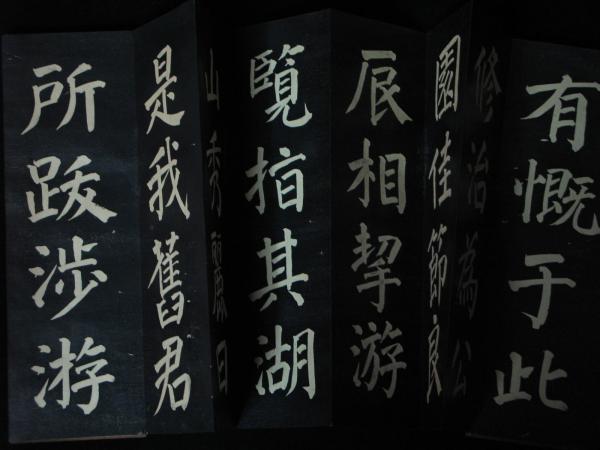 有慨于此
修治為公
園佳節良
辰相挈游
覽指其湖
山秀麗曰
是我舊君
所跋涉游